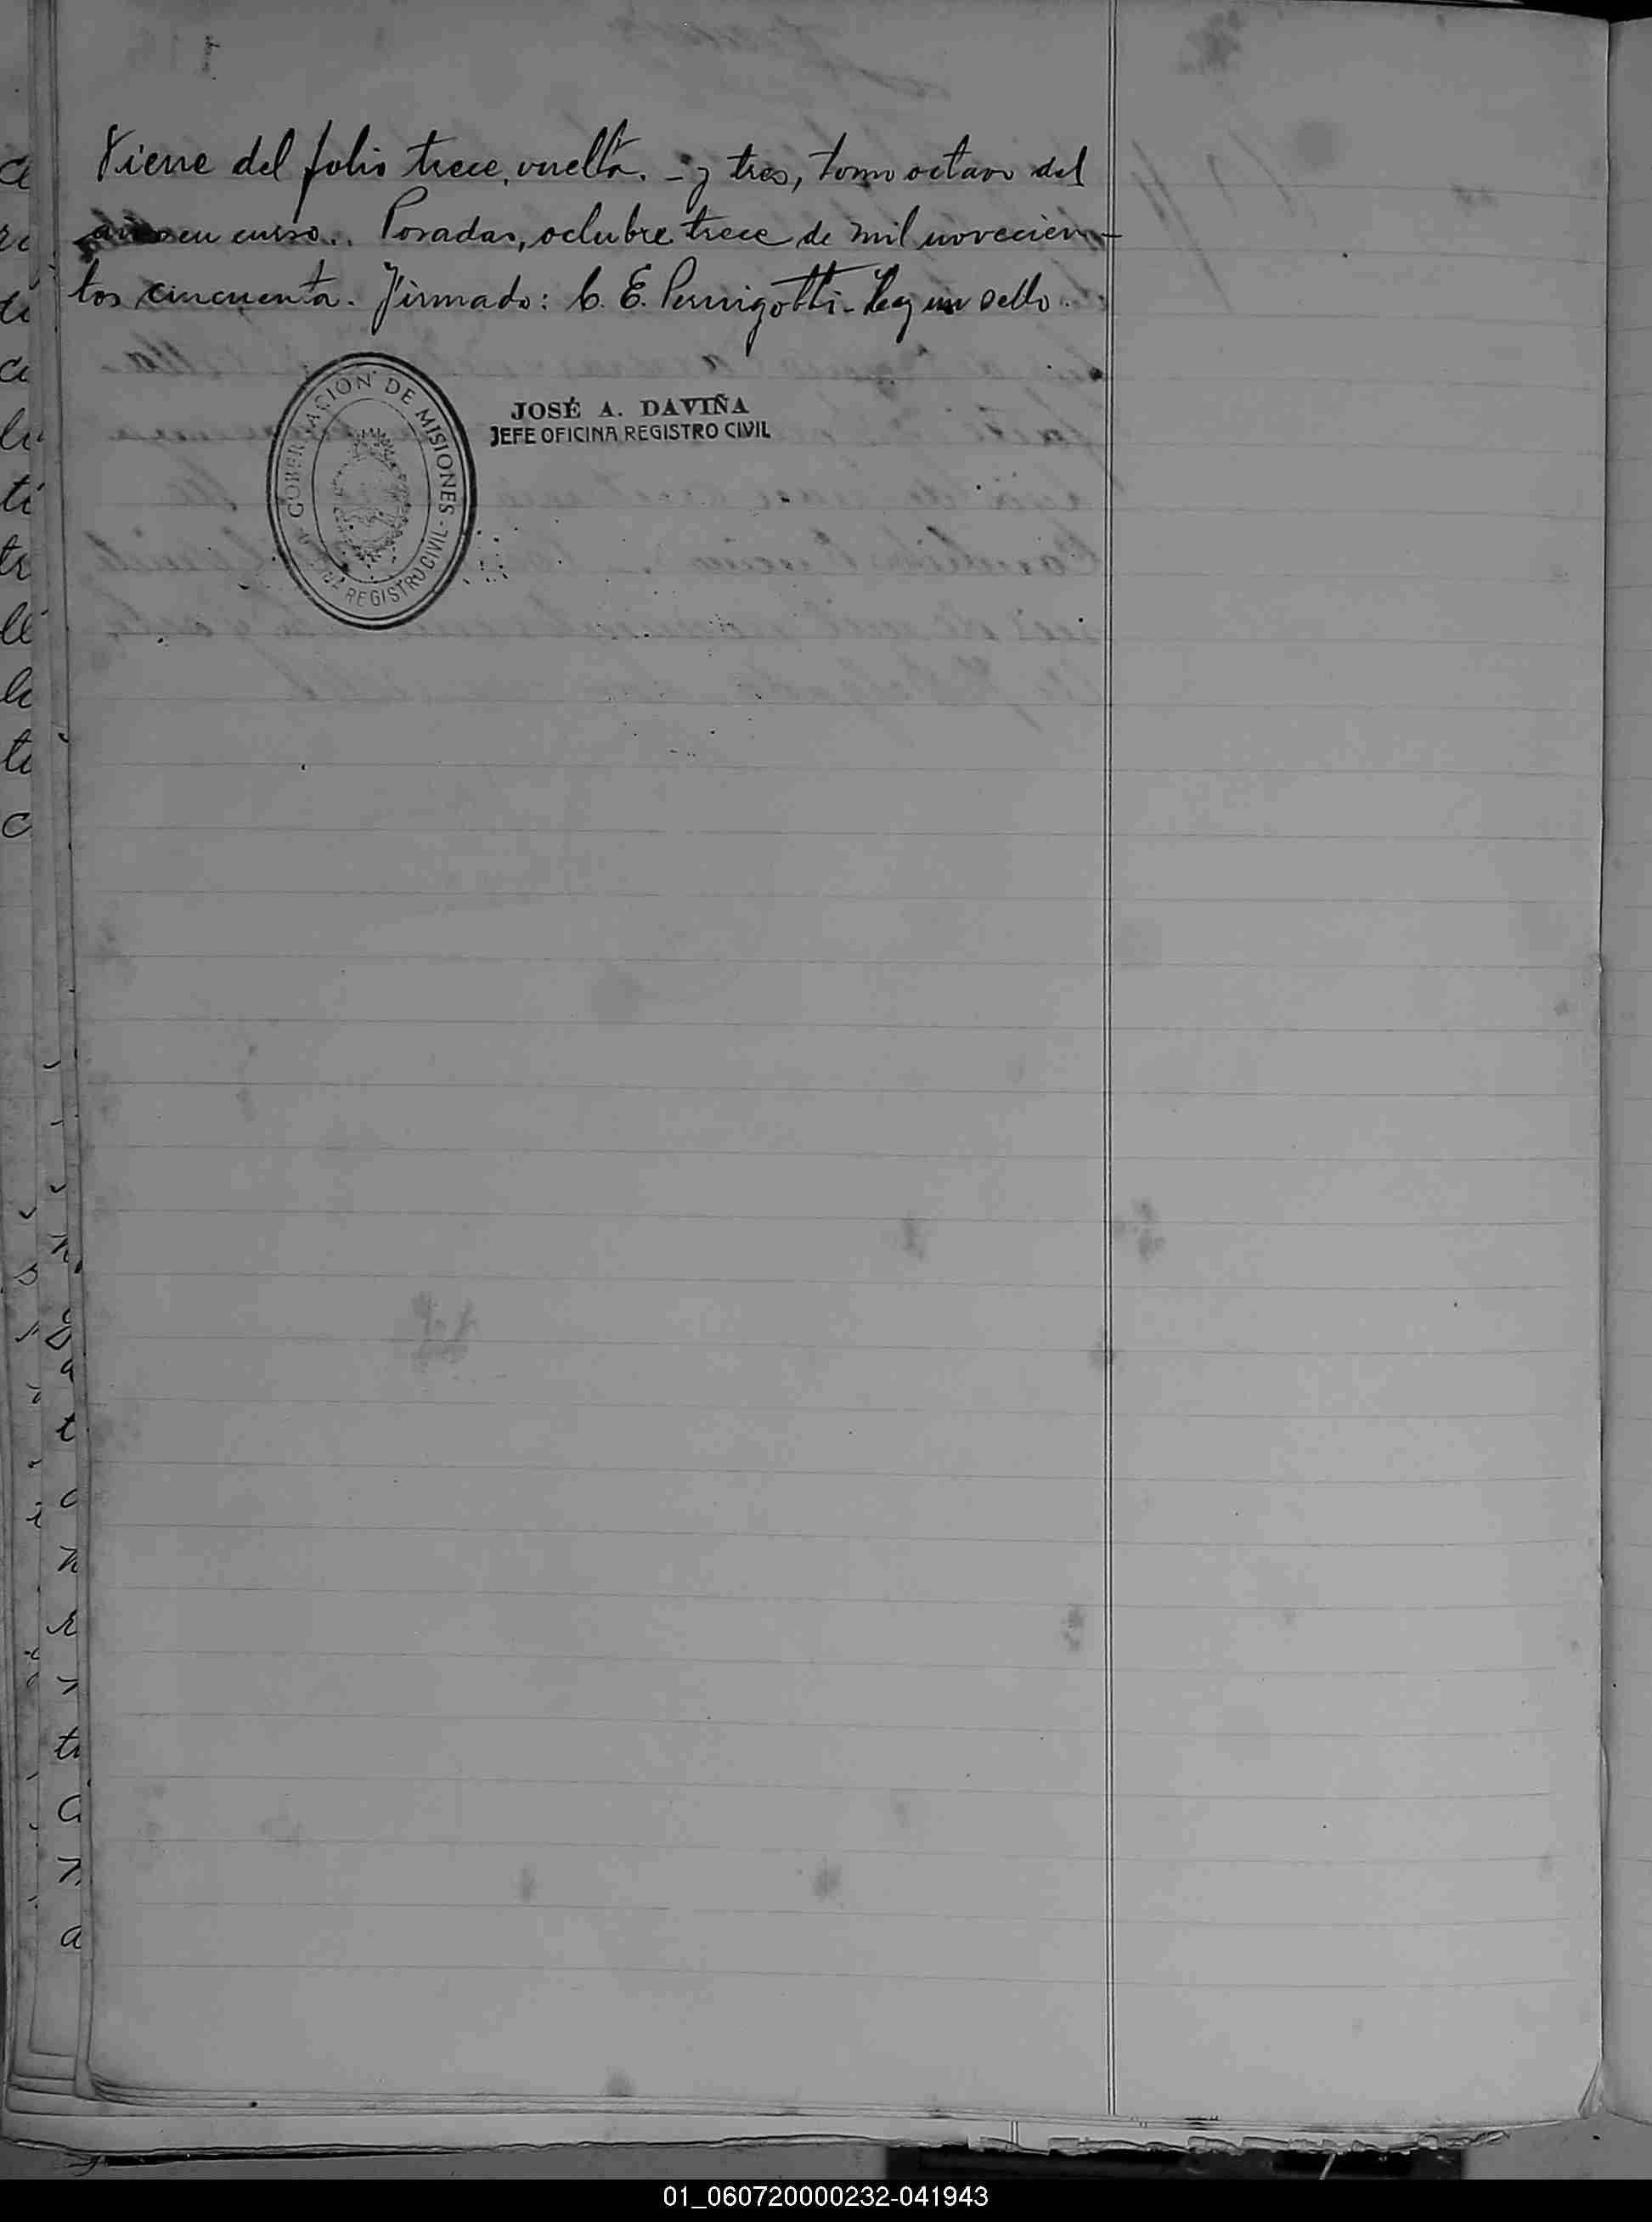 Viene del folio trece, vuelta. - y tres, tomo octavo del
año en curso.. Posadas, octubre trece de mil novecien-
tos cincuenta. Firmado: C. E. Pernigotti - Hay un sello.
GOBERNACION DE MISIONES - REGISTRO CIVIL -
JOSÉ A. DAVIÑA
JEFE OFICINA REGISTRO CIVIL
01_060720000232-041943